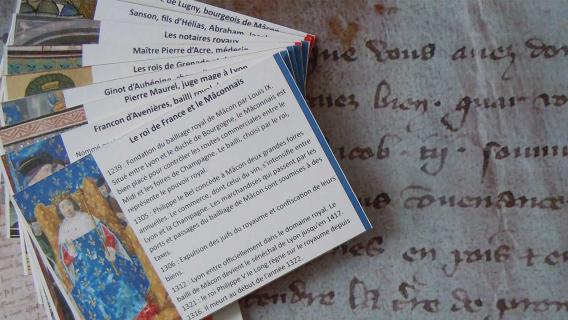 de Lugny, bourgeois de Mâcon
Sanson, fils d'Hélias, Abraham,
Les notaires royaux
Maître Pierre d'Acre, médecin
Les rois de Grenade
Ginot d'Aubépine,
Pierre Maurel, juge mage à Lyon
Francon d'Avenières, bailli royal
Nommé
Le roi de France et le Mâconnais
1239 : Fondation du bailliage royal de Mâcon par Louis IX.
Situé entre Lyon et le duché de Bourgogne, le Mâconnais est
bien placé pour contrôler les routes commerciales entre le
Midi et les foires de Champagne. Le bailli, choisi par le roi,
représente le pouvoir royal.
1305 : Philippe le Bel concède à Mâcon deux grandes foires
annuelles. Le commerce, dont celui du vin, s'intensifie entre
Lyon et la Champagne. Les marchandises qui passent par les
ports et passages du bailliage de Mâcon sont soumises à des
taxes.
1306 : Expulsion des juifs du royaume et confiscation de leurs
biens.
1312 : Lyon entre officiellement dans le domaine royal. Le
bailli de Mâcon devient le sénéchal de Lyon jusqu'en 1417.
1321 : le roi Philippe V le Long règne sur le royaume depuis
1316. Il meurt au début de l'année 1322.
que vous avez don
bien quar
cob ty somm
convenance
en pois t en
rendre la de pro